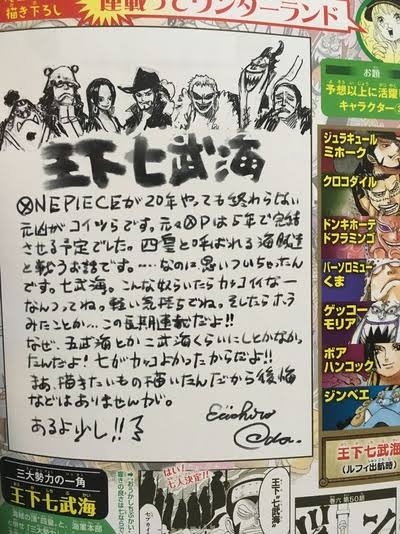 描き下ろし
連載ってワンダーランド
お題
予想以上に活躍
キャラクター
王下七武海
ⓍNE PIECEが20年やっても終わらない
元凶がコイツらです。元々ⓍPは5年で完結
させる予定でした。四皇と呼ばれる海賊達
と戦うお話です。……なのに思いついちゃったん
です。七武海。こんな奴らいたらカッコイイなー
なんつってね。軽い気持ちでね。そしたらホラ
みたことか…この長期連載だよ!!
なぜ、五武海とか三武海くらいにしとかなかっ
たんだよ!七がカッコよかったからだよ!!
まあ、描きたいもの描いたんだから後悔
などはありませんが。
あるよ少し!!
Eiichiro
Oda.
ジュラキュール
ミホーク
クロコダイル
ドンキホーテ
ドフラミンゴ
バーソロミュー
くま
ゲッコー
モリア
ボア
ハンコック
ジンベエ
王下七武海
(ルフィ出航時)
三大勢力の一角
王下七武海
はい!
七人決定!!
王下七武海
巻六 第50話